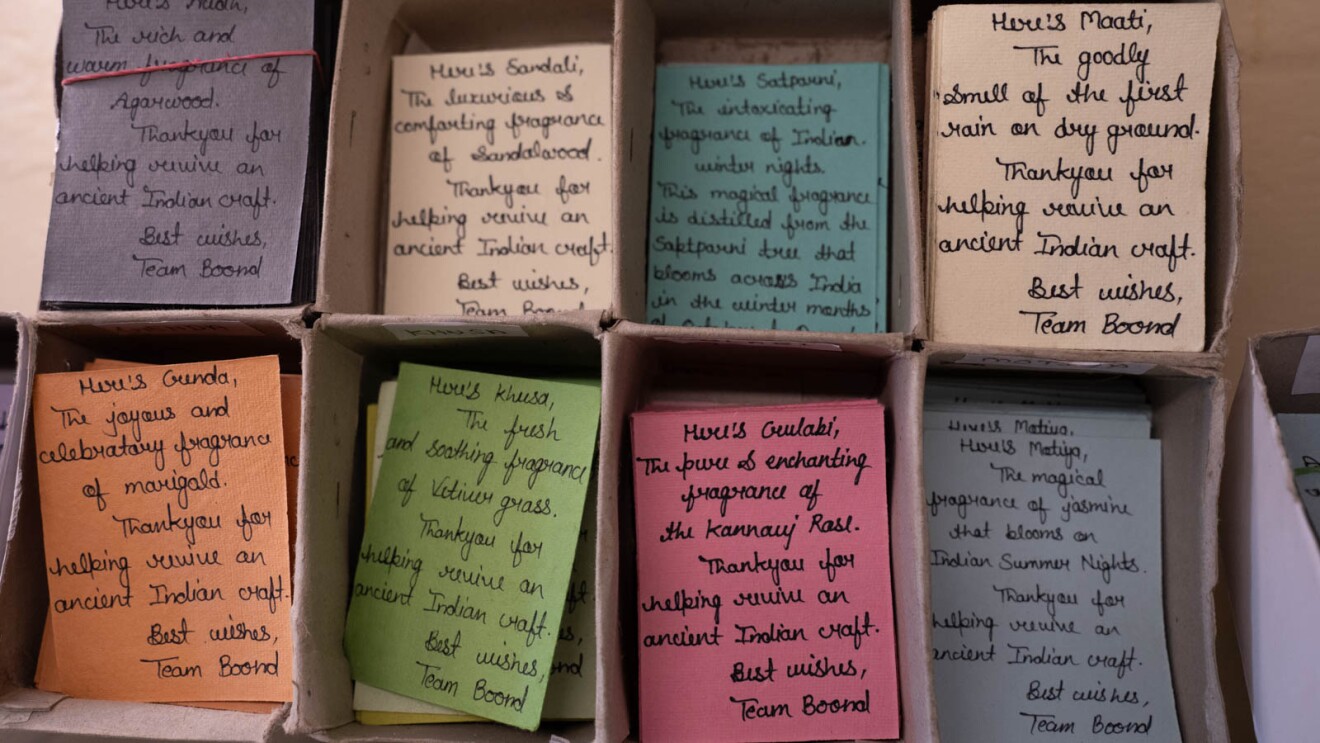 Here's
The rich and
warm fragrance of
Agarwood.
Thankyou for
helping revive an
ancient Indian craft.
Best wishes,
Team Boond
Here's Sandali,
The luxurious &
comforting fragrance
of Sandalwood.
Thankyou for
helping revive an
ancient Indian craft.
Best wishes,
Team Boond
Here's Satparni,
The intoxicating
fragrance of Indian
winter nights.
This magical fragrance
is distilled from the
Saptparni tree that
blooms across India
in the winter months
Here's Maati,
The goodly
smell of the first
rain on dry ground.
Thankyou for
helping revive an
ancient Indian craft.
Best wishes,
Team Boond
Here's Genda,
The joyous and
celebratory fragrance
of marigold.
Thankyou for
helping revive an
ancient Indian craft.
Best wishes,
Team Boond
KHUSA
Here's Khusa,
The fresh
and soothing fragrance
of Vetiver grass.
Thankyou for
helping revive an
ancient Indian craft.
Best wishes,
Team Boond
Here's Gulabi,
The pure & enchanting
fragrance of
the Kannauj Rose.
Thankyou for
helping revive an
ancient Indian craft.
Best wishes,
Team Boond
Here's Motiya,
Here's Motiya,
The magical
fragrance of jasmine
that blooms on
Indian Summer Nights.
Thankyou for
helping revive an
ancient Indian craft.
Best wishes,
Team Boond